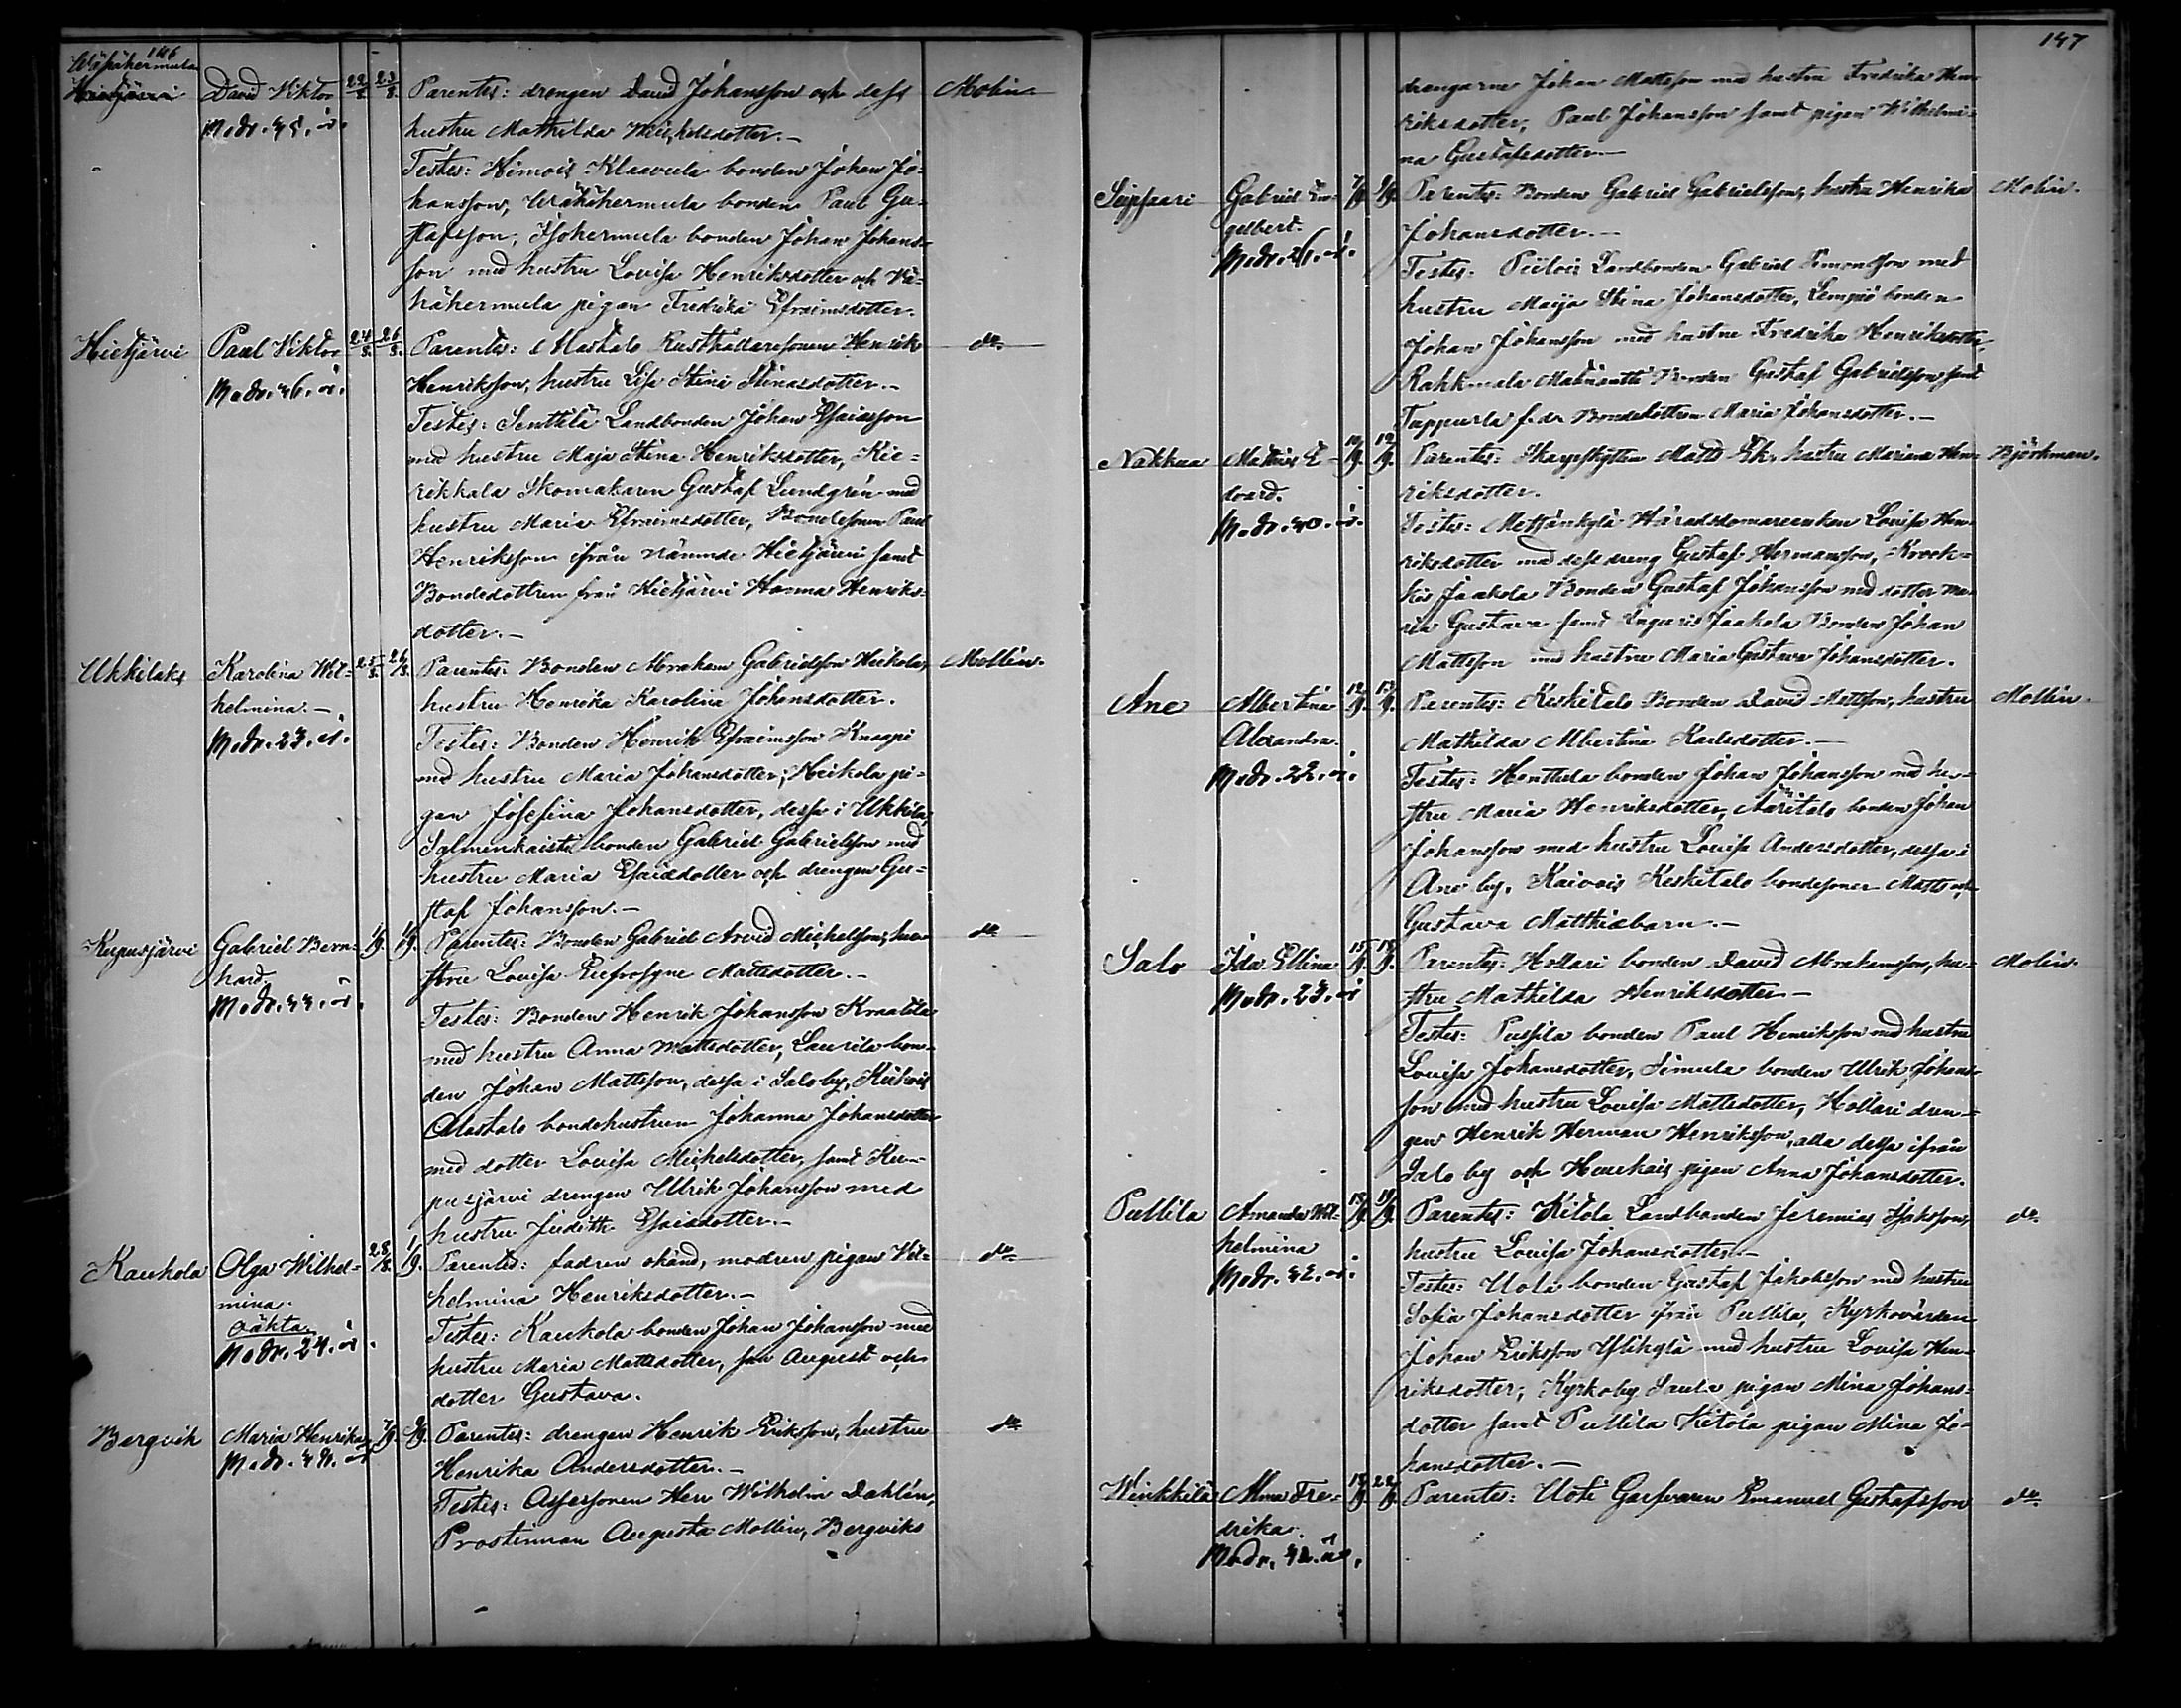 146
Hietjärvi David Viktor 22/8. 23/8. Parentes: drengen David Johansson och dess Molin
hustru Mathilda Michelsdotter.-
Testes: Himois Klaavula bonden Johan Jo=
hansson, Wähähermula bonden Paul Gu=
stafsson, Isohermula bonden Johan Johans=
son med hustru Lovisa Henriksdotter och Vä=
hähermula pigan Fredrika Efraimsdotter.
Hietjärvi Paul Viktor 24/8. 26/8. Parentes: Alastalo Rusthållaresonen Henrik do
Modr. 26. år.
Henriksson, hustru Lisa Stina
Testes: Senttilä Landbonden Johan Esaiasson
med hustru Maja Stina Henriksdotter, Kie=
rikkala Skomakaren Gustaf Lundgrén med
hustru Maria Efraimsdotter, Bondesonen Paul
Henriksson ifrån nämnde Hietjärvi samt
Bondedottren från Hietjärvi Hanna Henriks=
dotter.-
Ukkilaks Karolina Wil= 25/8. 26/8. Parentes: Bonden Abraham Gabrielsson Heikola, Mollin.
helmina.- hustru Henrika Karolina Johansdotter.
Modr. 23. år. Testes: Bonden Henrik Efraimsson Knaapi
med hustru Maria Johansdotter, Heikola pi=
gan Josefina Johansdotter, dessa i Ukkila,
Salmenkaista bonden Gabriel Gabrielsson med
hustru Maria Esaiadotter och drengen Gu=
staf Johansson.-
Kupusjärvi Gabriel Bern= Parentes: Bonden Gabriel Arvid Michelsson, hu= do
hard. stru Lovisa Eufrosyne Mattsdotter.-
Testes: Bonden Henrik Johansson Kraatila
med hustru Anna Mattsdotter, Laurila bon=
den Johan Mattsson, dessa i Salo by,
Alastalo bondehustrun Johanna Johansdotter
med dotter Lovisa Michelsdotter, samt Ku=
pusjärvi drengen Ulrik Johansson med
hustru Judith Esaiadotter.-
Kaukola Olga Wilhel= 28/8. 1/9. Parentes: fadren okänd, modren pigan Wil= do
mina. helmina Henriksdotter.-
oäkta Testes: Kaukola bonden Johan Johansson med
Modr. 24. år. hustru Maria Mattsdotter, son August och
dotter Gustava.
Bergvik Maria Henrika 7/9. 9/9. Parentes: drengen Henrik Eriksson, hustru do
Henrika Andersdotter.-
Testes: Assessoren Herr Wilhelm Dahlén,
Prostinnan Augusta Mollin, Bergviks
147
drengarne Johan Mattsson med hustru Fredrika Hen=
riksdotter, Paul Johansson samt pigan Wilhelmi=
na Gustafsdotter.-
Seppäri Gabriel En= 7/9. 9/9. Parentes: Bonden Gabriel Gabrielsson, hustru Henrika Molin.
gelbert. Johansdotter.-
Modr. 26. år. Testes: Piilois Landbonden Gabriel Simonsson med
hustru Maija Stina Johansdotter, Lempiö bonden
Johan Johansson med hustru Fredrika Henriksdotter,
Bonden Gustaf Gabrielsson samt
Tuppurla f.d. Bondedottren Maria Johansdotter.-
Nakkua Mathias E= 10/9. 12/9. Parentes: Matts Ek, hustru Mariana Hen= Björkman.
dvard. riksdotter.
Modr. 40. år. Testes: Metsänkylä Häradsdomareenkan Lovisa Hen=
riksdotter med dess dreng Gustaf Hermansson, Krook=
kis Jaakola Bonden Gustaf Johansson med dotter Ma=
ria Gustava samt Inguris Jaakola Bonden Johan
Mattsson med hustru Maria Gustava Johansdotter.
Ane Albertina 12/9. 13/9. Parentes: Keskitalo Bonden David Mattsson, hustru Mollin.
Alexandra. Mathilda Albertina Karlsdotter.-
Modr. 22. år. Testes: Honttila bonden Johan Johansson med hu=
stru Maria Henriksdotter, Ääritalo bonden Johan
Johansson med hustru Lovisa Andersdotter, dessa i
Ane by, Kaivois Keskitalo bondesonen Matts och
Gustava Matthiæbarn.-
Salo Ida Ellina Parentes: Hollari bonden David Abrahamsson, hu= Molin.
Modr. 23. år stru Mathilda Henriksdotter.-
Testes: Pussila bonden Paul Henriksson med hustru
Lovisa Johansdotter, Simula bonden Ulrik Johans=
son med hustru Lovisa Mattsdotter, Hollari dren=
gen Henrik Herman Henriksson, alla dessa ifrån
Salo by och pigan Anna Johansdotter.
Pullila Amanda Wil= Parentes: Kitola Landbonden Jeremias Isaksson, do
helmina hustru Lovisa Johansdotter.-
Testes: Uola bonden Gustaf Jakobsson med hustru
Sofia Johansdotter från Pullila, Kyrkovärden
Johan Eriksson Ylikylä med hustru Lovisa Hen=
riksdotter, Kyrkoby Saula pigan Mina Johans=
dotter samt Pullila Kitola pigan Mina Jo=
hansdotter.-
Winkkilä Alma Fre= Parentes: Uoti Emanuel Gustafsson do
drika.
Modr. 42. år.